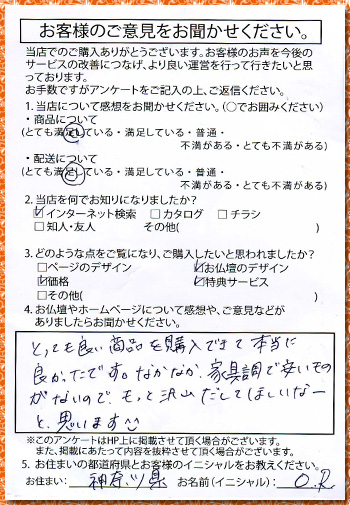 お客様のご意見をお聞かせください。
当店でのご購入ありがとうございます。お客様のお声を今後の
サービスの改善につなげ、より良い運営を行って行きたいと思
っております。
お手数ですがアンケートをご記入の上、ご返信ください。
1. 当店について感想をお聞かせください。(〇でお囲みください)
・商品について
(とても満足している・満足している・普通・
不満がある・とても不満がある)
・配送について
(とても満足している・満足している・普通・
不満がある・とても不満がある)
2. 当店を何でお知りになりましたか?
☑インターネット検索 □カタログ □チラシ
□知人・友人 その他( )
3. どのような点をご覧になり、ご購入したいと思われましたか?
□ページのデザイン ☑お仏壇のデザイン
☑価格 ☑特典サービス
□その他( )
4. お仏壇やホームページについて感想や、ご意見などが
ありましたらお聞かせください。
とっても良い商品を購入できて本当に
良かったです。なかなか、家具調で安いもの
がないので、もっと沢山だしてほしいなー
と、思います
※このアンケートはHP上に掲載させて頂く場合がございます。
また、掲載にあたって内容を抜粋させて頂く場合がございます。
5. お住まいの都道府県とお客様のイニシャルをお教えください。
お住まい: 神奈川県 お名前(イニシャル): O.R.